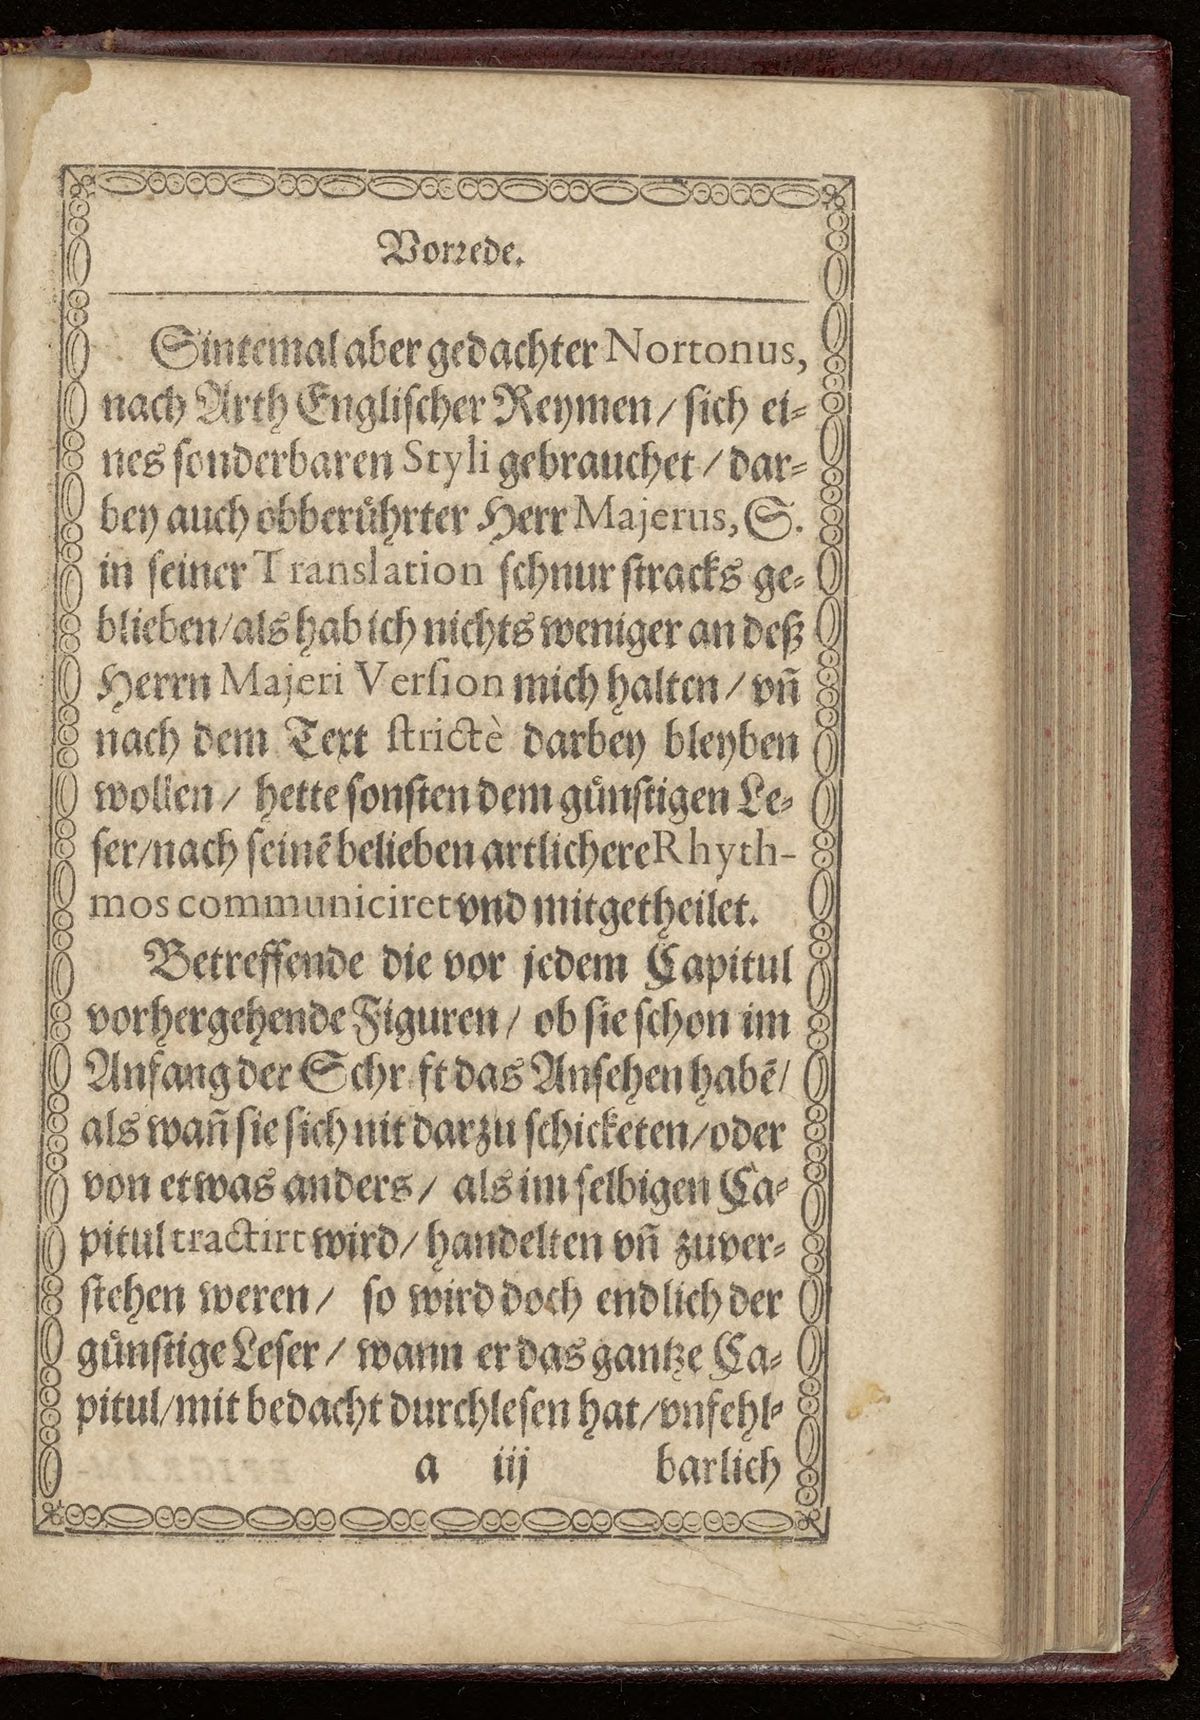 Vorrede.
Sintemal aber gedachter Nortonus,
nach Arth Englischer Reymen / sich ei⸗
nes sonderbaren Styli gebrauchet / dar⸗
bey auch obberuͤhrter Herr Majerus, S.
in seiner Translation schnur stracks ge⸗
blieben / als hab ich nichts weniger an deß
Herrn Majeri Version mich halten / vñ
nach dem Text strictè darbey bleyben
wollen / hette sonsten dem guͤnstigen Le⸗
ser / nach seinē belieben artlichere Rhyth-
mos communiciret vnd mitgetheilet.
Betreffende die vor jedem Capitul
vorhergehende Figuren / ob sie schon im
Anfang der Schr ft das Ansehen habē /
als wañ sie sich nit darzu schicketen / oder
von etwas anders / als im selbigen Ca⸗
pitul tractirt wird / handelten vñ zuver⸗
stehen weren / so wird doch endlich der
guͤnstige Leser / wann er das gantze Ca⸗
pitul / mit bedacht durchlesen hat / vnfehl⸗
a iij barlich